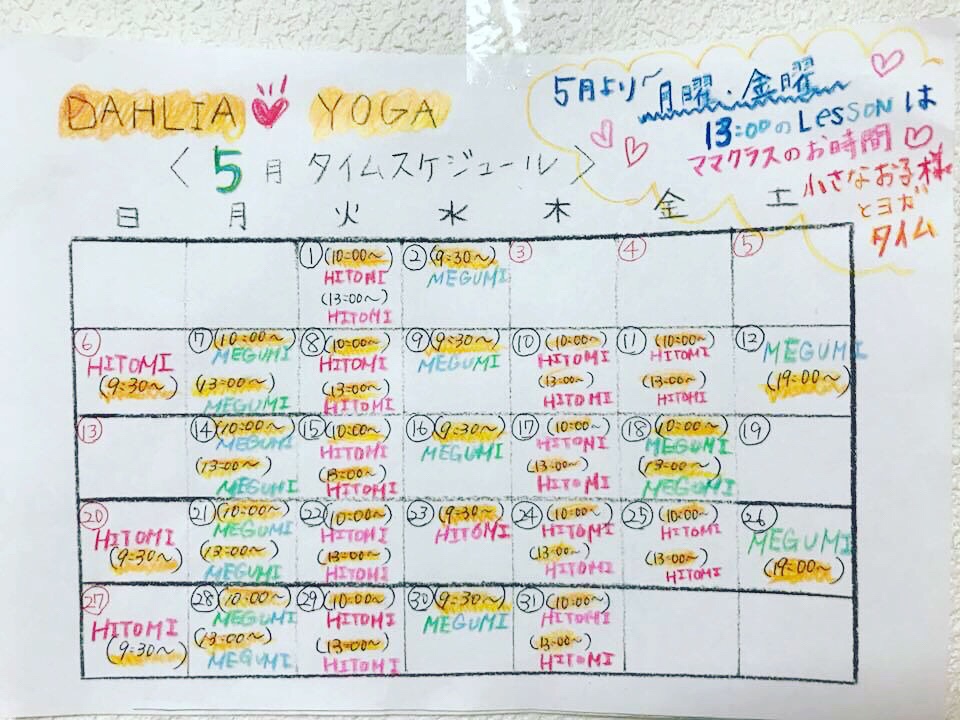 DAHLIA YOGA
〈 5月 タイムスケジュール 〉
5月より〜
月曜・金曜
13:00のLessonは
ママクラスのお時間
小さなお子様
とヨガ
タイム
日 月 火 水 木 金 土
① (10:00〜) HITOMI (13:00〜) HITOMI
② (9:30〜) MEGUMI
③
④
⑤
⑥ HITOMI (9:30〜)
⑦ (10:00〜) MEGUMI (13:00〜) MEGUMI
⑧ (10:00〜) HITOMI (13:00〜) HITOMI
⑨ (9:30〜) MEGUMI
⑩ (10:00〜) HITOMI (13:00〜) HITOMI
⑪ (10:00〜) HITOMI (13:00〜) HITOMI
⑫ MEGUMI (19:00〜)
⑬
⑭ (10:00〜) MEGUMI (13:00〜) MEGUMI
⑮ (10:00〜) HITOMI (13:00〜) HITOMI
⑯ (9:30〜) MEGUMI
⑰ (10:00〜) HITOMI (13:00〜) HITOMI
⑱ (10:00〜) MEGUMI (13:00〜) MEGUMI
⑲
⑳ HITOMI (9:30〜)
㉑ (10:00〜) MEGUMI (13:00〜) MEGUMI
㉒ (10:00〜) HITOMI (13:00〜) HITOMI
㉓ (9:30〜) HITOMI
㉔ (10:00〜) HITOMI (13:00〜) HITOMI
㉕ (10:00〜) HITOMI (13:00〜) HITOMI
㉖ MEGUMI (19:00〜)
㉗ HITOMI (9:30〜)
㉘ (10:00〜) MEGUMI (13:00〜) MEGUMI
㉙ (10:00〜) HITOMI (13:00〜) HITOMI
㉚ (9:30〜) MEGUMI
㉛ (10:00〜) HITOMI (13:00〜) HITOMI